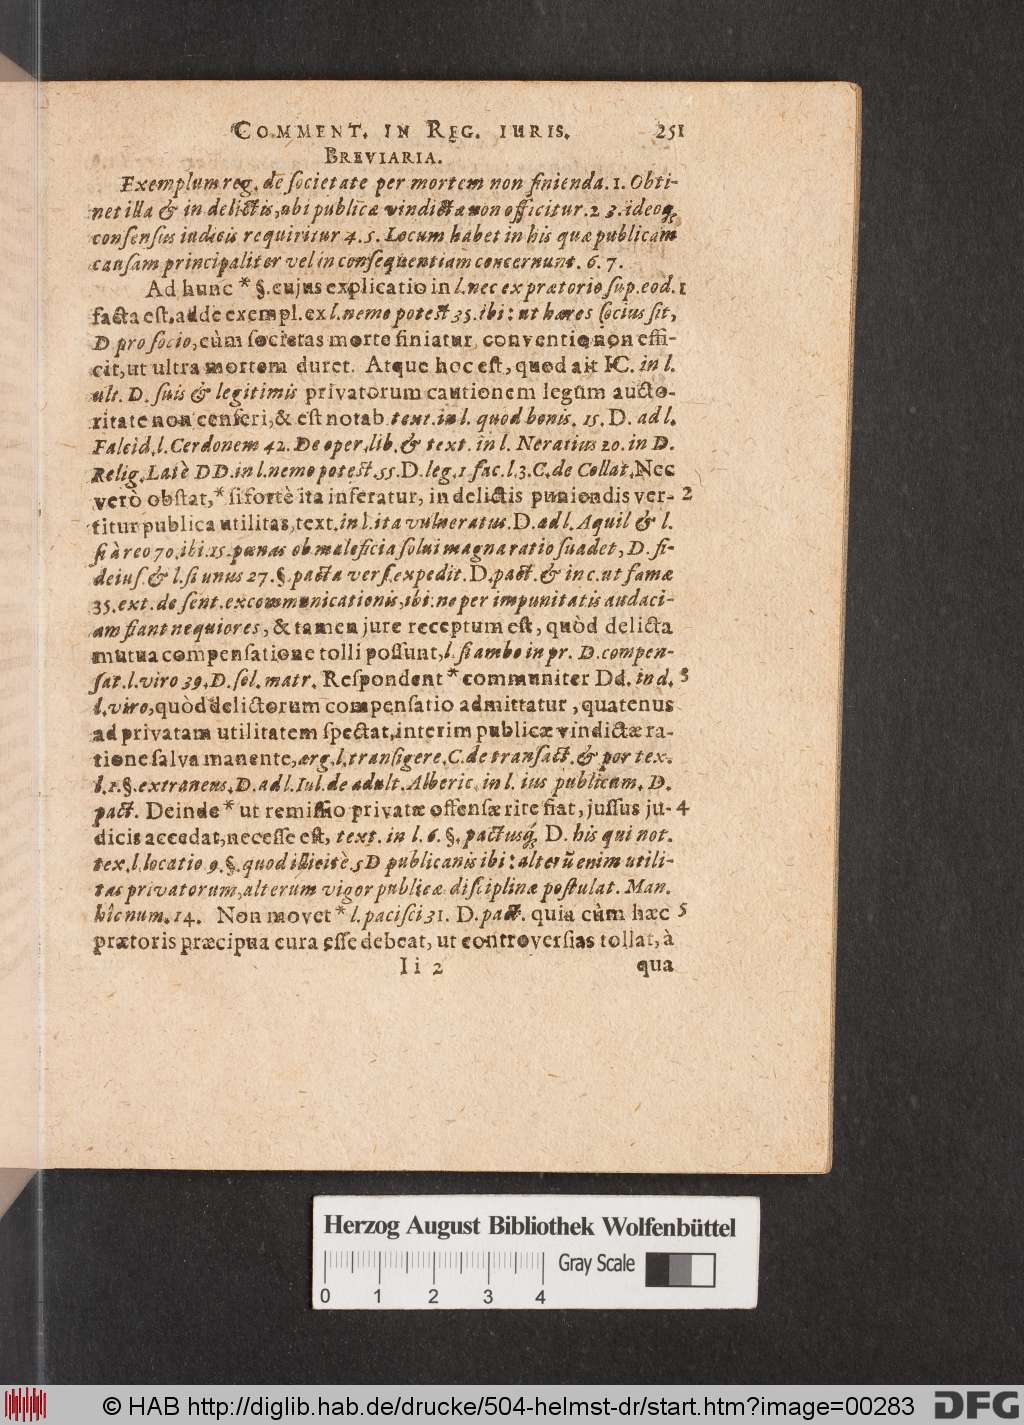 COMMENT. IN REG. IURIS. 251
BREVIARIA.
Exemplum reg. de societate per mortem non finienda. 1. Obti-
net illa & in delictis, ubi publicæ vindictæ non officitur. 2 3. ideoq;
consensus iudicis requiritur 4. 5. Locum habet in his quæ publicam
causam principaliter vel in consequentiam concernunt. 6. 7.
Ad hunc * §. cujus explicatio in l. nec ex prætorio sup. eod. 1
facta est, adde exempl. ex l. nemo potest 35. ibi: ut hæres socius sit,
D pro socio, cùm societas morte finiatur, conventio non effi-
cit, ut ultra mortem duret. Atque hoc est, quod ait IC. in l.
ult. D. suis & legitimis privatorum cautionem legum aucto-
ritate non censeri, & est notab. text. in l. quod bonis. 15. D. ad l.
Falcid. l. Cerdonem 42. De oper. lib. & text. in l. Neratius 20. in D.
Relig. Latè DD. in l. nemo potest 55. D. leg. 1 fac. l. 3. C. de Collat. Nec
verò obstat, * si fortè ita inferatur, in delictis puniendis ver- 2
titur publica utilitas, text. in l. ita vulneratus. D. ad l. Aquil & l.
si à reo 70. ibi. 15. pœnas ob maleficia solui magna ratio suadet, D. fi-
deius. & l. si unus 27. §. pacta vers. expedit. D. pact. & in c. ut famæ
35. ext. de sent. excommunicationis, ibi: ne per impunitatis audaci-
am fiant nequiores, & tamen jure receptum est, quòd delicta
mutua compensatione tolli possunt, l. si ambo in pr. D. compen-
sat. l. viro 39. D. sol. matr. Respondent * communiter Dd. in d. 3
l. viro, quòd delictorum compensatio admittatur, quatenus
ad privatam utilitatem spectat, interim publicæ vindictæ ra-
tione salva manente, arg. l. transigere. C. de transact. & per tex.
l. 1. §. extraneus. D. ad l. Iul. de adult. Alberic. in l. ius publicum. D.
pact. Deinde * ut remissio privatæ offensæ rite fiat, jussus ju- 4
dicis accedat, necesse est, text. in l. 6. §. pactusq; D. his qui not.
tex. l. locatio 9. §. quod illicitè. 5 D publicanis ibi: alterū enim utili-
tas privatorum, alterum vigor publicæ disciplinæ postulat. Man.
hîc num. 14. Non movet * l. pacisci 31. D. pact. quia cùm hæc 5
prætoris præcipua cura esse debeat, ut controversias tollat, à
Ii 2 qua
Herzog August Bibliothek Wolfenbüttel
Gray Scale
0 1 2 3 4
© HAB http://diglib.hab.de/drucke/504-helmst-dr/start.htm?image=00283 DFG